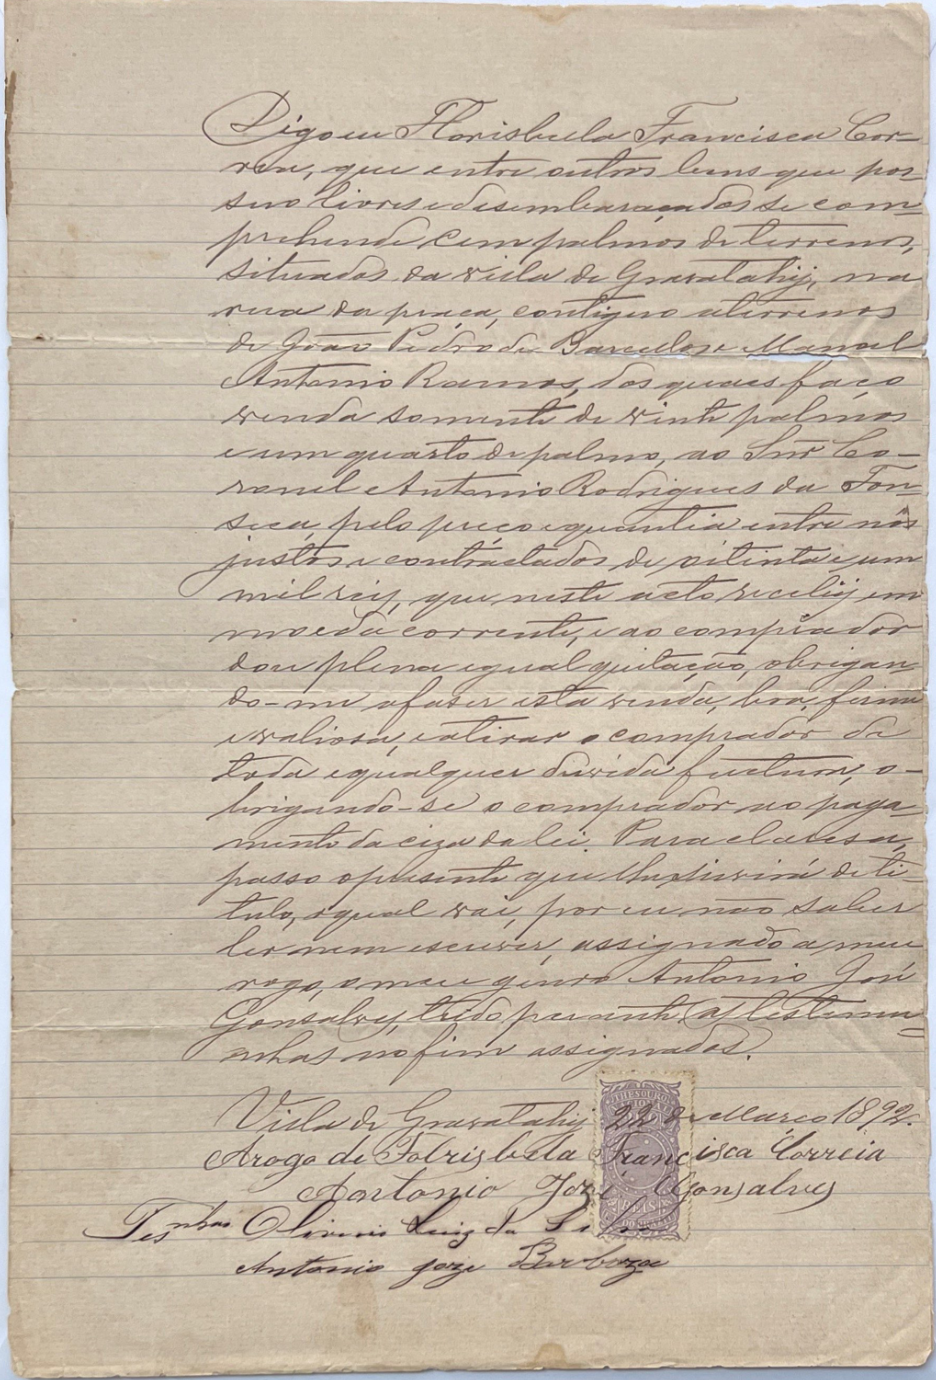 Digo eu Florisbela Francisca Cor-
rea, que entre outros bens que pos-
suo livres e desembaraçados se com-
prehende cem palmos de terrenos,
situados da villa de Gravatahy, na
rua da praça, contiguo a terrenos
de João Pedro de Barcellos e Manoel
Antonio Ramos, dos quaes faço
venda somente de vinte palmos
e um quarto de palmo, ao Snr Co-
ronel Antonio Rodrigues da Fon-
seca, pelo preço e quantia entre nós
justos e contractados de oitinta e um
mil reis, que neste acto recebij em
moeda corrente, e ao comprador
dou plena e gual quitação, obrigan-
do-me a faser esta venda, boa, firme
e valiosa, e atirar o comprador de
toda e qualquer duvida fuctura, o-
brigando-se o comprador ao paga-
mento da ciza da lei. Para claresa,
passo o presente que lhe servirá de ti-
tulo, o qual vai, por eu não saber
ler nem escrever, assignado a meu
rogo, o meu genro Antonio José
Gonsalves, tudo perante as testemu-
nhas no fim assignados.
Villa de Gravatahy 22 de Março 1892.
Arogo de Folrisbela Francisca Correia
Antonio José Gonsalves
Tesnhas Luiz da Silva
Antonio joze Barboza
THESOURO
REIS